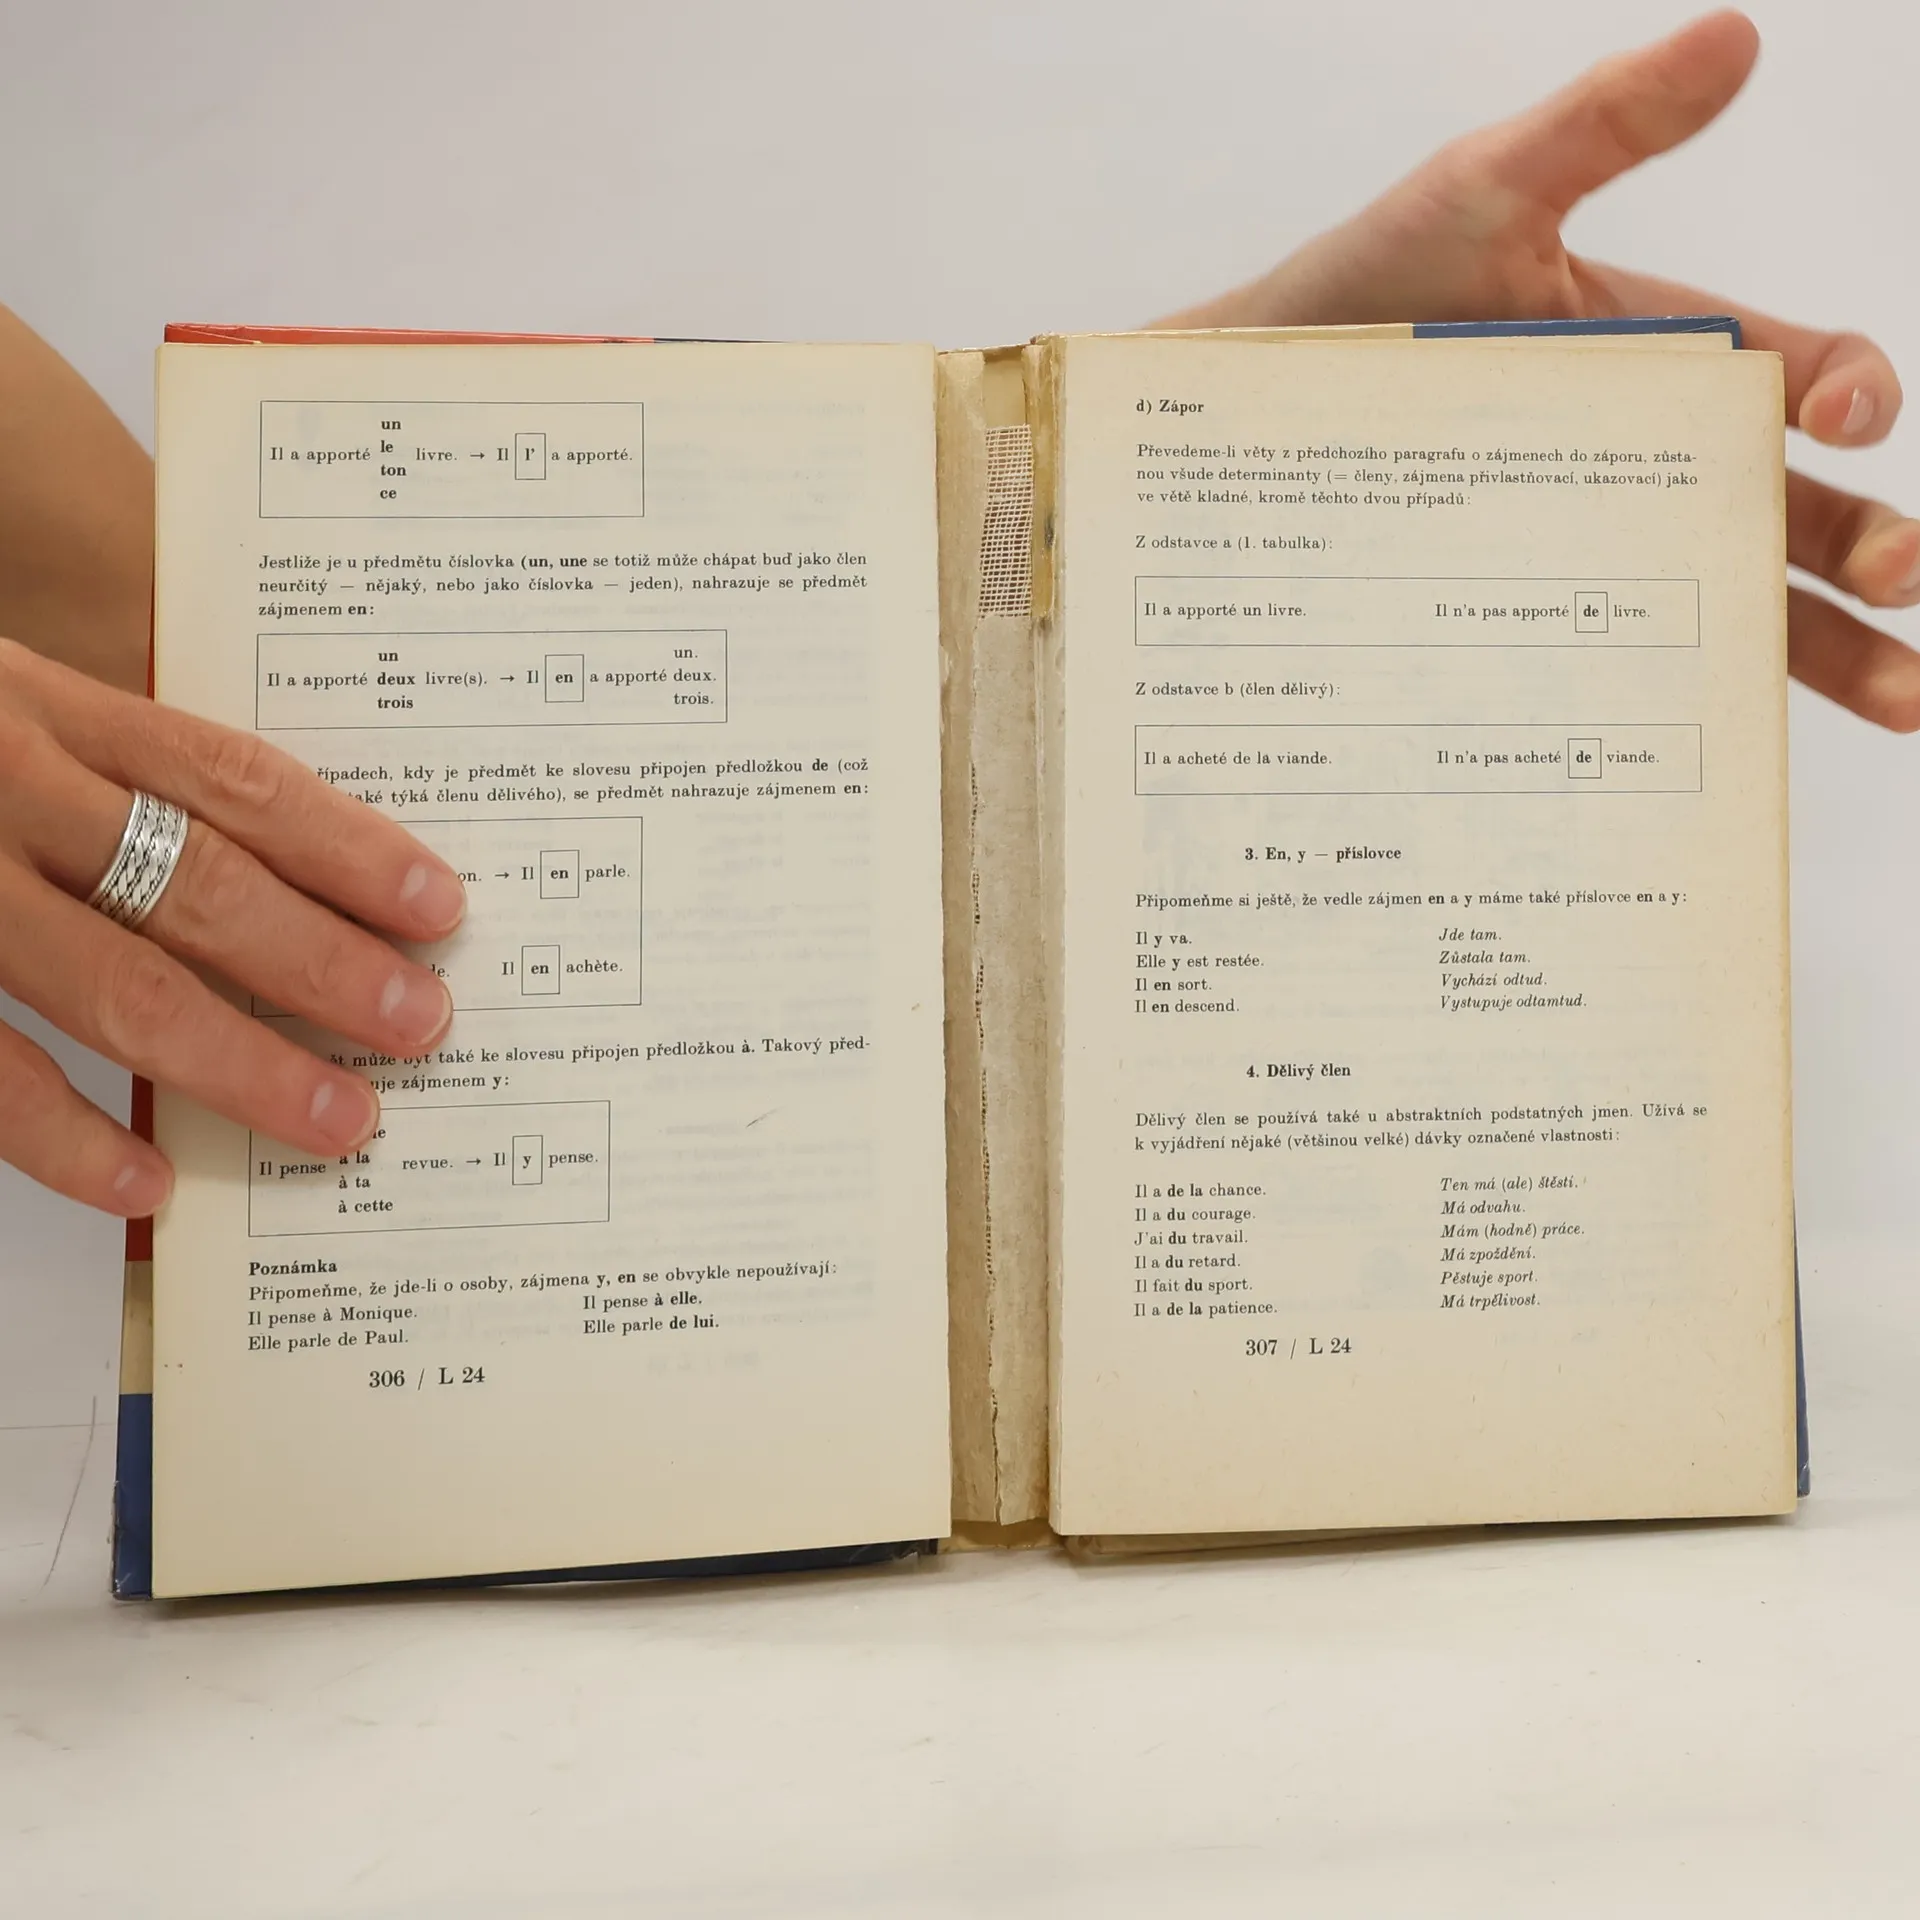 un
le
Il a apporté livre. → Il l' a apporté.
ton
ce
Jestliže je u předmětu číslovka (un, une se totiž může chápat buď jako člen
neurčitý — nějaký, nebo jako číslovka — jeden), nahrazuje se předmět
zájmenem en:
un un.
Il a apporté deux livre(s). → Il en a apporté deux.
trois trois.
kdy je předmět ke slovesu připojen předložkou de (což
týká členu dělivého), se předmět nahrazuje zájmenem en:
→ Il en parle.
Il en achète.
může být také ke slovesu připojen předložkou à. Takový před-
zájmenem y:
Il pense à la revue. → Il y pense.
à ta
à cette
Poznámka
Připomeňme, že jde-li o osoby, zájmena y, en se obvykle nepoužívají:
Il pense à Monique. Il pense à elle.
Elle parle de Paul. Elle parle de lui.
306 / L 24
d) Zápor
Převedeme-li věty z předchozího paragrafu o zájmenech do záporu, zůsta-
nou všude determinanty (= členy, zájmena přivlastňovací, ukazovací) jako
ve větě kladné, kromě těchto dvou případů:
Z odstavce a (1. tabulka):
Il a apporté un livre. Il n'a pas apporté de livre.
Z odstavce b (člen dělivý):
Il a acheté de la viande. Il n'a pas acheté de viande.
3. En, y — příslovce
Připomeňme si ještě, že vedle zájmen en a y máme také příslovce en a y:
Il y va. Jde tam.
Elle y est restée. Zůstala tam.
Il en sort. Vychází odtud.
Il en descend. Vystupuje odtamtud.
4. Dělivý člen
Dělivý člen se používá také u abstraktních podstatných jmen. Užívá se
k vyjádření nějaké (většinou velké) dávky označené vlastnosti:
Il a de la chance. Ten má (ale) štěstí.
Il a du courage. Má odvahu.
J'ai du travail. Mám (hodně) práce.
Il a du retard. Má zpoždění.
Il fait du sport. Pěstuje sport.
Il a de la patience. Má trpělivost.
307 / L 24